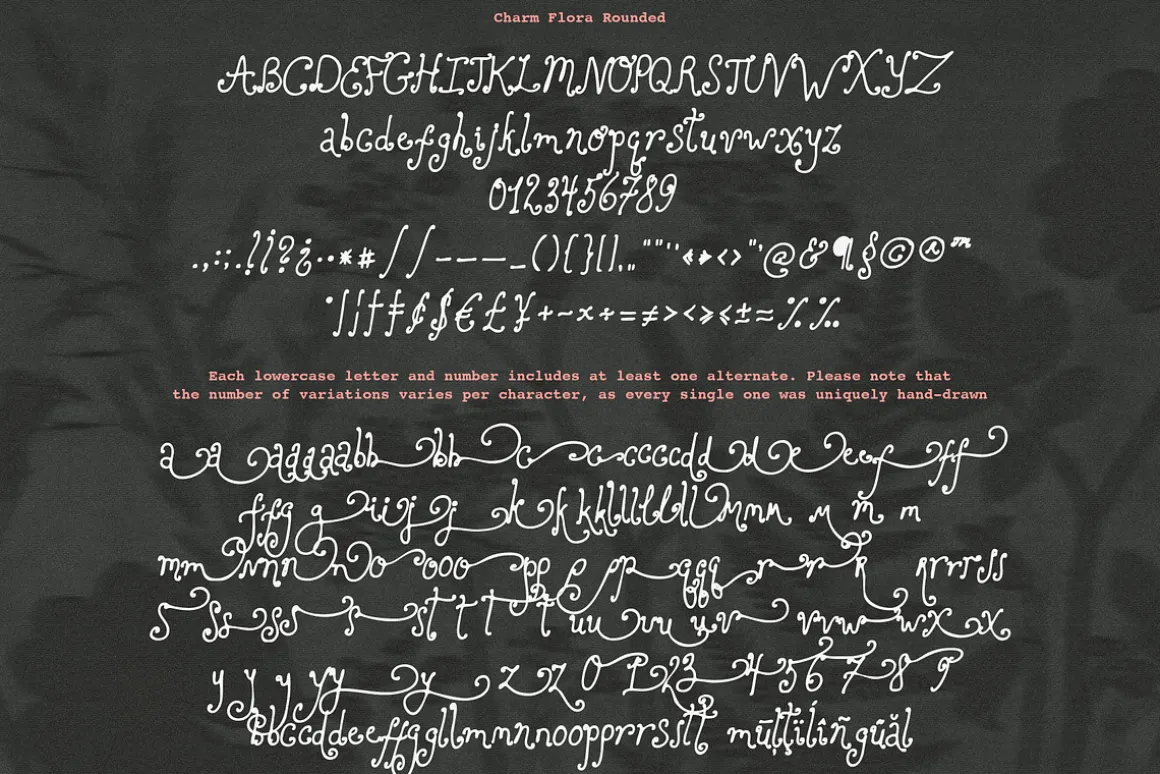 Charm Flora Rounded
ABCDEFGHIJKLMNOPQRSTUVWXYZ
abcdefghijklmnopqrstuvwxyz
0123456789
.,:;.!¡?¿··*#//-–—_(){}[]‚„“”‘’«»‹›"'@&¶§©®™
°|¦†‡¢$€£¥+−×÷=≠><≥≤±≈%‰
Each lowercase letter and number includes at least one alternate. Please note that
the number of variations varies per character, as every single one was uniquely hand-drawn
a a aaaaabb bb c c ccccdd d e eef ff
ffg g iijj k kkklllllllmmm m m m
mm nnn n o ooo pp p pp qqq r r R RrrrSS
s ss ss s st t t t uu uu y v vvw wx x
y y y yy y z z 0 1 23 4 5 6 7 8 9
bbccddeeffggllmmnnoopprrsstt mūļţïlîñgūăl